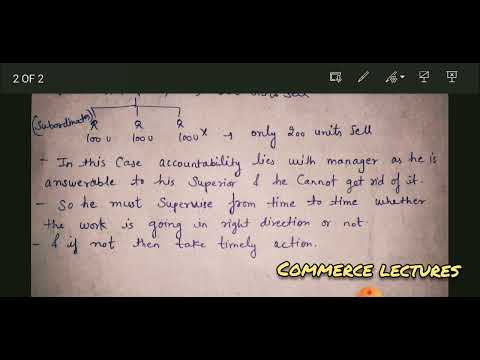 2 OF 2
units sell
(Subordinates) R R R
100 U 100 U 100 U x → only 200 units sell
- In this Case accountability lies with manager as he is
answerable to his Superior & he Cannot get rid of it.
- So he must Supervise from time to time whether
the work is going in right direction or not.
- & if not then take timely action.
COMMERCE LECTURES